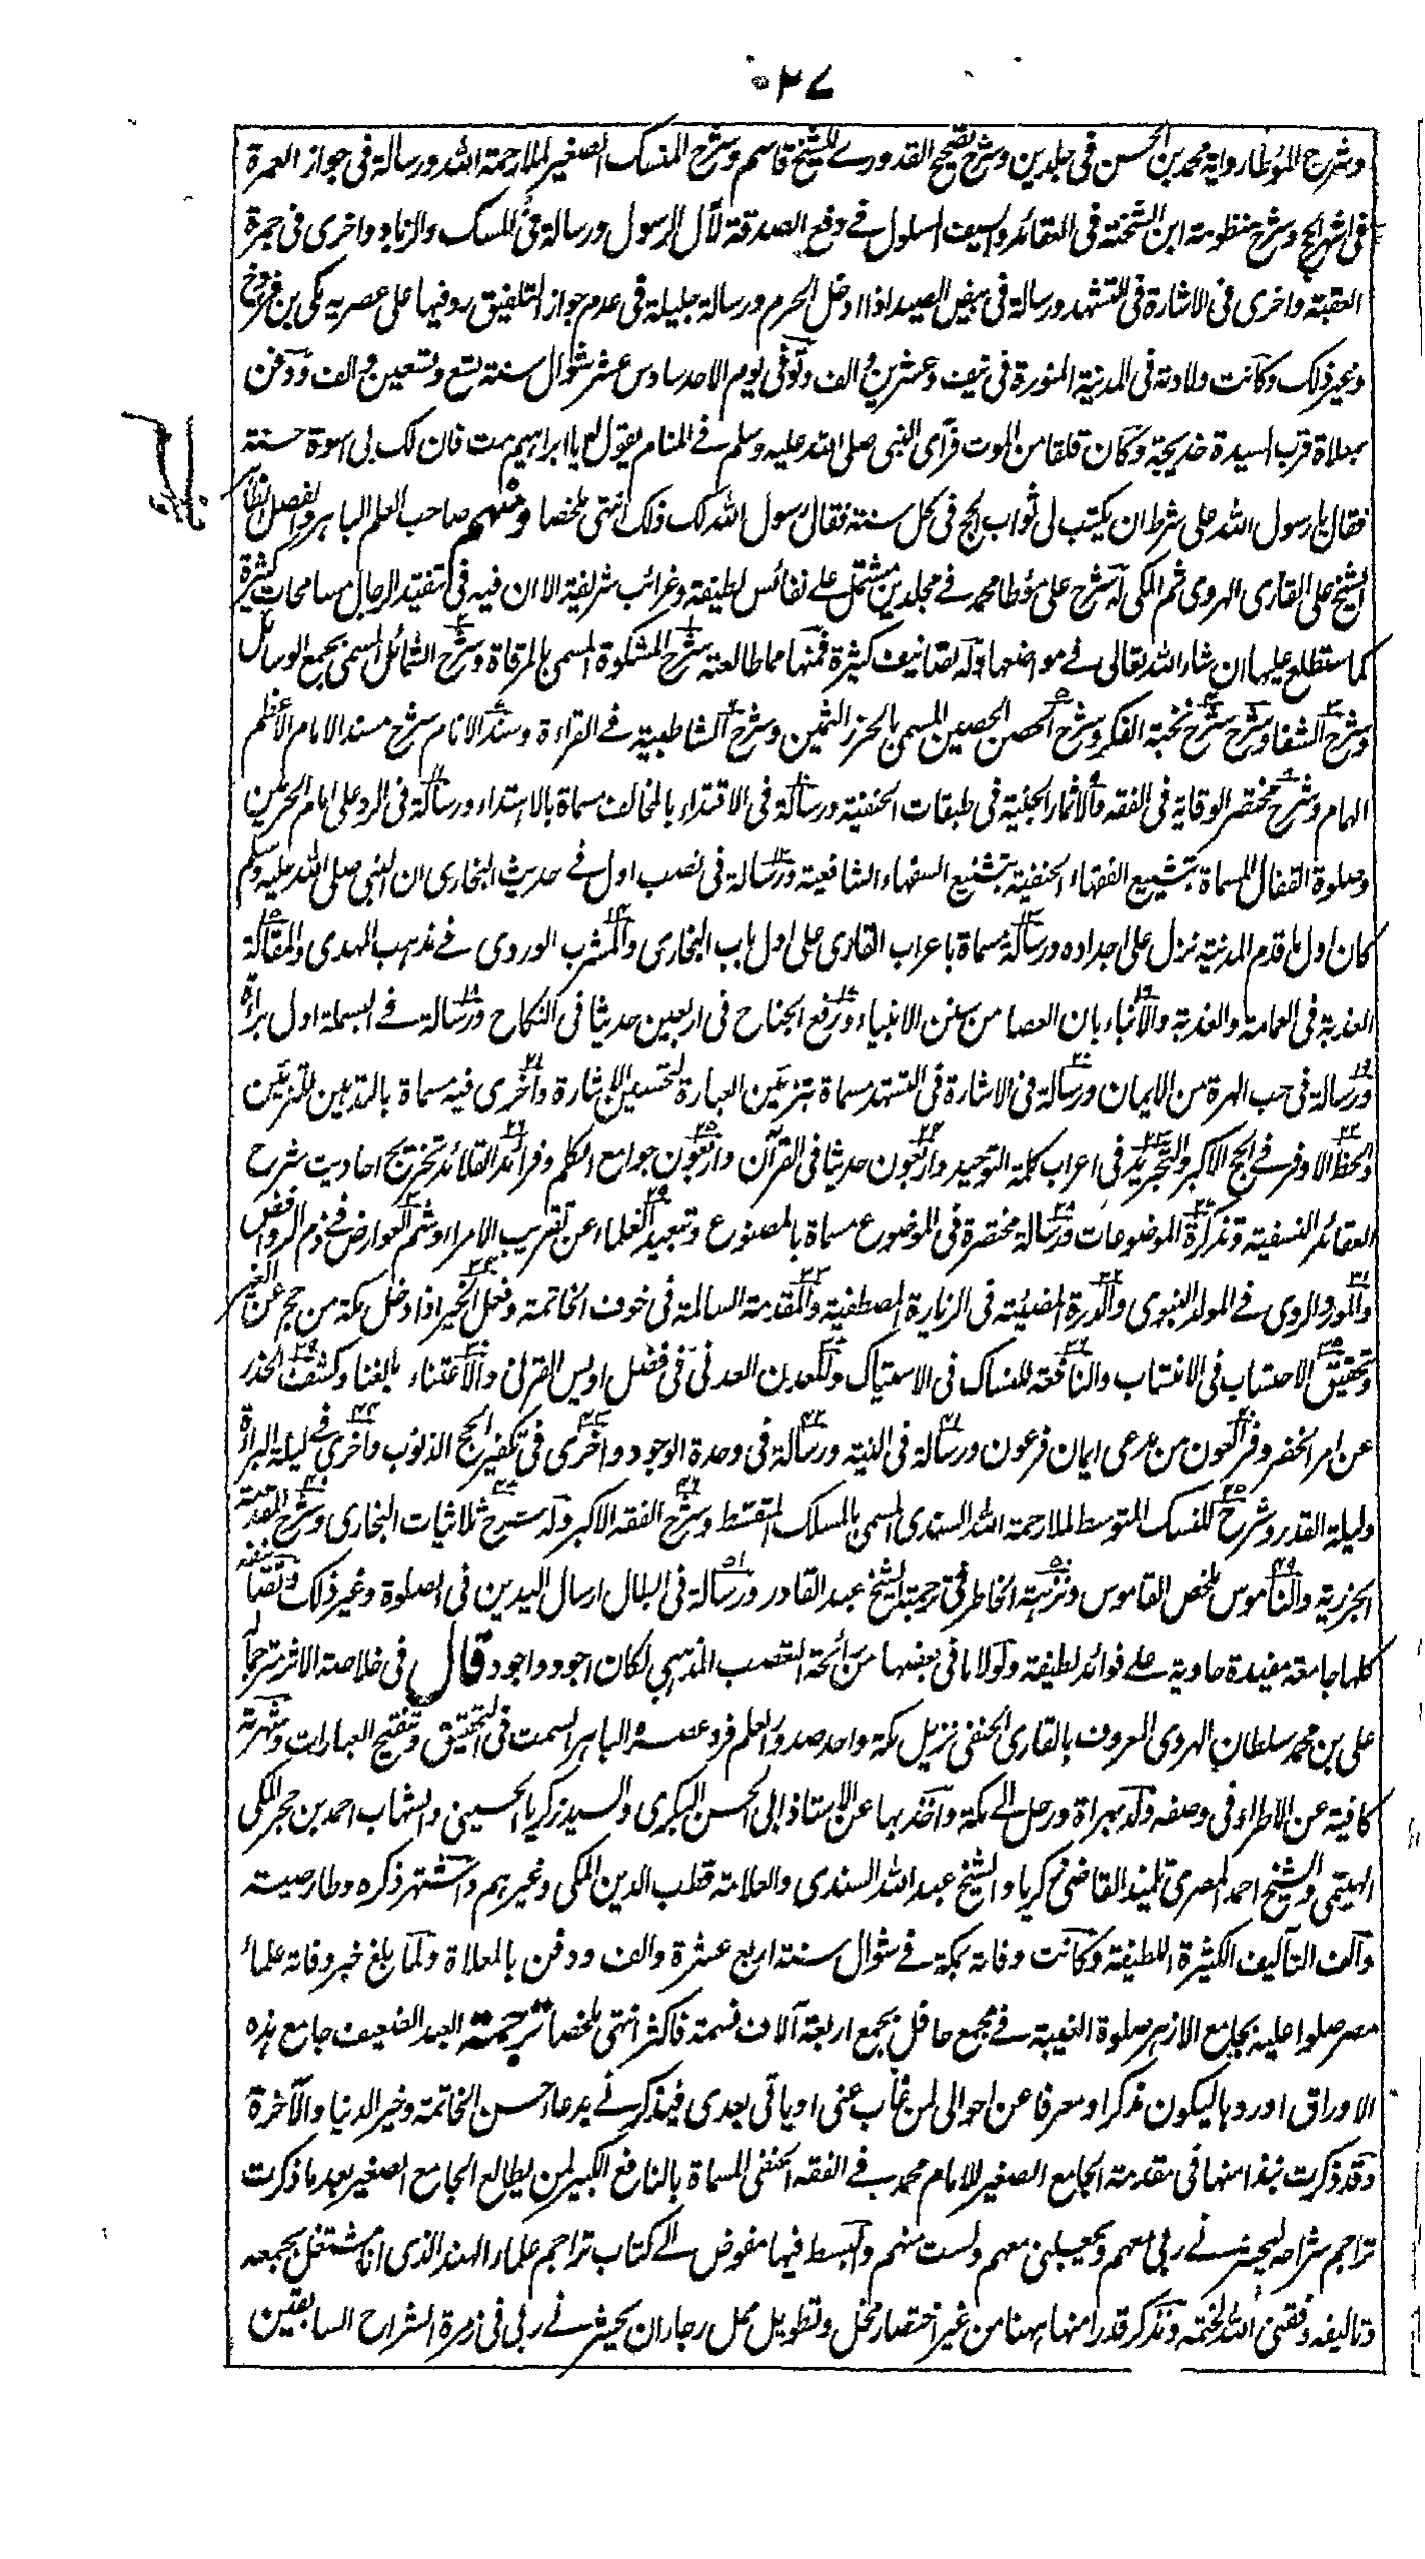 ٢٧
وشرح الموطا رواية محمد بن الحسن فى جلدين وشرح تصحيح القدوري للشيخ قاسم وشرح المنسك الصغير لملا رحمة الله ورسالة فى جواز العمرة
فى اشهر الحج وشرح منظومة ابن الشحنة فى العقائد والسيف المسلول في دفع الصدقة لآل الرسول ورسالة فى المسك والزباد واخرى فى جمرة
العقبة واخرى فى الاشارة فى التشهد ورسالة فى بيض الصيد اذا ادخل الحرم ورسالة جليلة فى عدم جواز التلفيق رد فيها على عصريه مكى بن فروخ
وغير ذلك وكانت ولادته فى المدينة المنورة فى نيف وعشرين والف وتوفى يوم الاحد سادس عشر شوال سنة تسع وتسعين والف ودفن
بمعلاة قرب السيدة خديجة وكان قلقا من الموت فرآى النبى صلى الله عليه وسلم في المنام يقول له يا ابراهيم مت فان لك بى اسوة حسنة
فقال يا رسول الله على شرط ان يكتب لى ثواب الحج فى كل سنة فقال رسول الله لك ذلك انتهى ملخصا ومنهم صاحب العلم الباهر والفضل الظاهر
الشيخ على القارى الهروى ثم المكى له شرح على مؤطا محمد في مجلدين مشتمل على نفائس لطيفة وغرائب شريفة الا ان فيه فى تنقيد الرجال مسامحات كثيرة
كما ستطلع عليها ان شاء الله تعالى في مواضعها وله تصانيف كثيرة فمنها مما طالعته شرح المشكوة المسمى بالمرقاة وشرح الشمائل المسمى بجمع الوسائل
وشرح الشفا وشرح شرح نخبة الفكر وشرح الحصن الحصين المسمى بالحرز الثمين وشرح الشاطبية في القراءة وسند الانام شرح مسند الامام الاعظم
الهمام وشرح مختصر الوقاية فى الفقه والاثمار الجنية فى طبقات الحنفية ورسالة فى الاقتداء بالمخالف مسماة بالاهتداء ورسالة فى الرد على امام الحرمين
وصلوة القفال المسماة بتشييع الفقهاء الحنفية بتشنيع السفهاء الشافعية ورسالة فى نصب اول في حديث البخارى ان النبى صلى الله عليه وسلم
كان اول ما قدم المدينة نزل على اجداده ورسالة مسماة باعراب القارى على اول باب البخارى والمشرب الوردى في مذهب المهدى والمقالة
العذبة فى العمامة والعذبة والانباء بان العصا من سنن الانبياء ورفع الجناح فى اربعين حديثا فى النكاح ورسالة في البسملة اول براءة
ورسالة فى حب الهرة من الايمان ورسالة فى الاشارة فى التشهد مسماة بتزيين العبارة لتحسين الاشارة واخرى فيه مسماة بالتدهين للتزيين
والحظ الاوفر في الحج الاكبر والتجريد فى اعراب كلمة التوحيد واربعون حديثا فى القرآن واربعون جوامع الكلم وفرائد القلائد تخريج احاديث شرح
العقائد النسفية وتذكرة الموضوعات ورسالة مختصرة فى الموضوع مسماة بالمصنوع وتبعيد العلماء عن تقريب الامراء وشم العوارض في ذم الروافض
والمورد الروى في المولد النبوى والدرة المضيئة فى الزيارة المصطفية والمقدمة السالمة فى خوف الخاتمة وفعل الخير اذا دخل مكة من حج عن الغير
وتحقيق الاحتساب فى الانتساب والنافعة للنساك فى الاستياك والمعدن العدنى فى فضل اويس القرنى والاعتناء بالغنا وكشف الخدر
عن امر الخضر وفر العون من مدعى ايمان فرعون ورسالة فى النية ورسالة فى وحدة الوجود واخرى فى تكفير الحج الذنوب واخرى في ليلة البراءة
وليلة القدر وشرح للنسك المتوسط لملا رحمة الله السندى المسمى بالمسلك المتقسط وشرح الفقه الاكبر وله شرح ثلاثيات البخارى وشرح المقدمة
الجزرية والناموس ملخص القاموس ونزهة الخاطر فى ترجمة الشيخ عبد القادر ورسالة فى ابطال ارسال اليدين فى الصلوة وغير ذلك وتصانيفه
كلها جامعة مفيدة حاوية على فوائد لطيفة ولولا ما فى بعضها من رائحة التعصب المذهبى لكان اجود واجود قال فى خلاصة الاثر مترجما له
على بن محمد سلطان الهروى المعروف بالقارى الحنفى نزيل مكة واحد صدور العلم فرد عصره الباهر السمت فى التحقيق وتنقيح العبارات وشهرته
كافية عن الاطراء فى وصفه ولد بهراة ورحل الى مكة واخذ بها عن الاستاذ ابى الحسن البكرى والسيد زكريا الحسينى والشهاب احمد بن حجر المكى
الهيتمى والشيخ احمد المصرى تلميذ القاضى زكريا والشيخ عبد الله السندى والعلامة قطب الدين المكى وغيرهم واشتهر ذكره وطار صيته
والف التآليف الكثيرة اللطيفة وكانت وفاته بمكة في شوال سنة اربع عشرة والف ودفن بالمعلاة ولما بلغ خبر وفاته علماء
مصر صلوا عليه بجامع الازهر صلوة الغيبة في مجمع حافل يجمع اربعة آلاف نسمة فاكثر انتهى ملخصا ترجمة العبد الضعيف جامع هذه
الاوراق اوردها ليكون مذكرا ومعرفا عن احوالى لمن غاب عنى او ياتى بعدى فيذكرني بدعاء حسن الخاتمة وخير الدنيا والآخرة
وقد ذكرت نبذا منها فى مقدمة الجامع الصغير للامام محمد في الفقه الحنفى المسماة بالنافع الكبير لمن يطالع الجامع الصغير بعد ما ذكرت
تراجم شراحه ليحشرني ربى معهم ويجعلنى معهم ولست منهم والبسط فيها مفوض الى كتاب تراجم علماء الهند الذى انا مشتغل بجمعه
وتاليفه وفقنى الله لختمه ونذكر قدرا منها ههنا من غير اختصار مخل وتطويل ممل رجاء ان يحشرني ربى فى زمرة الشراح السابقين